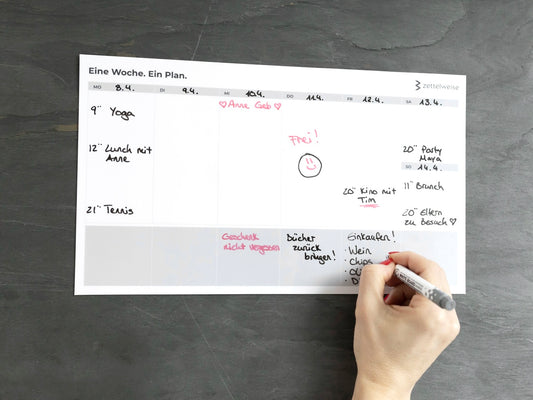 Eine Woche. Ein Plan.
zettelweise
MO 8.4. DI 9.4. MI 10.4. DO 11.4. FR 12.4. SA 13.4.
♡Anne Geb♡
9°° Yoga
Frei!
12°° Lunch mit
Anne
20°° Party
Maya
SO 14.4.
20°° Kino mit
Tim
11°° Brunch
21°° Tennis
20°° Eltern
zu Besuch♡
Geschenk
nicht vergessen
Bücher
zurück
bringen!
Einkaufen!
· Wein
· Chips